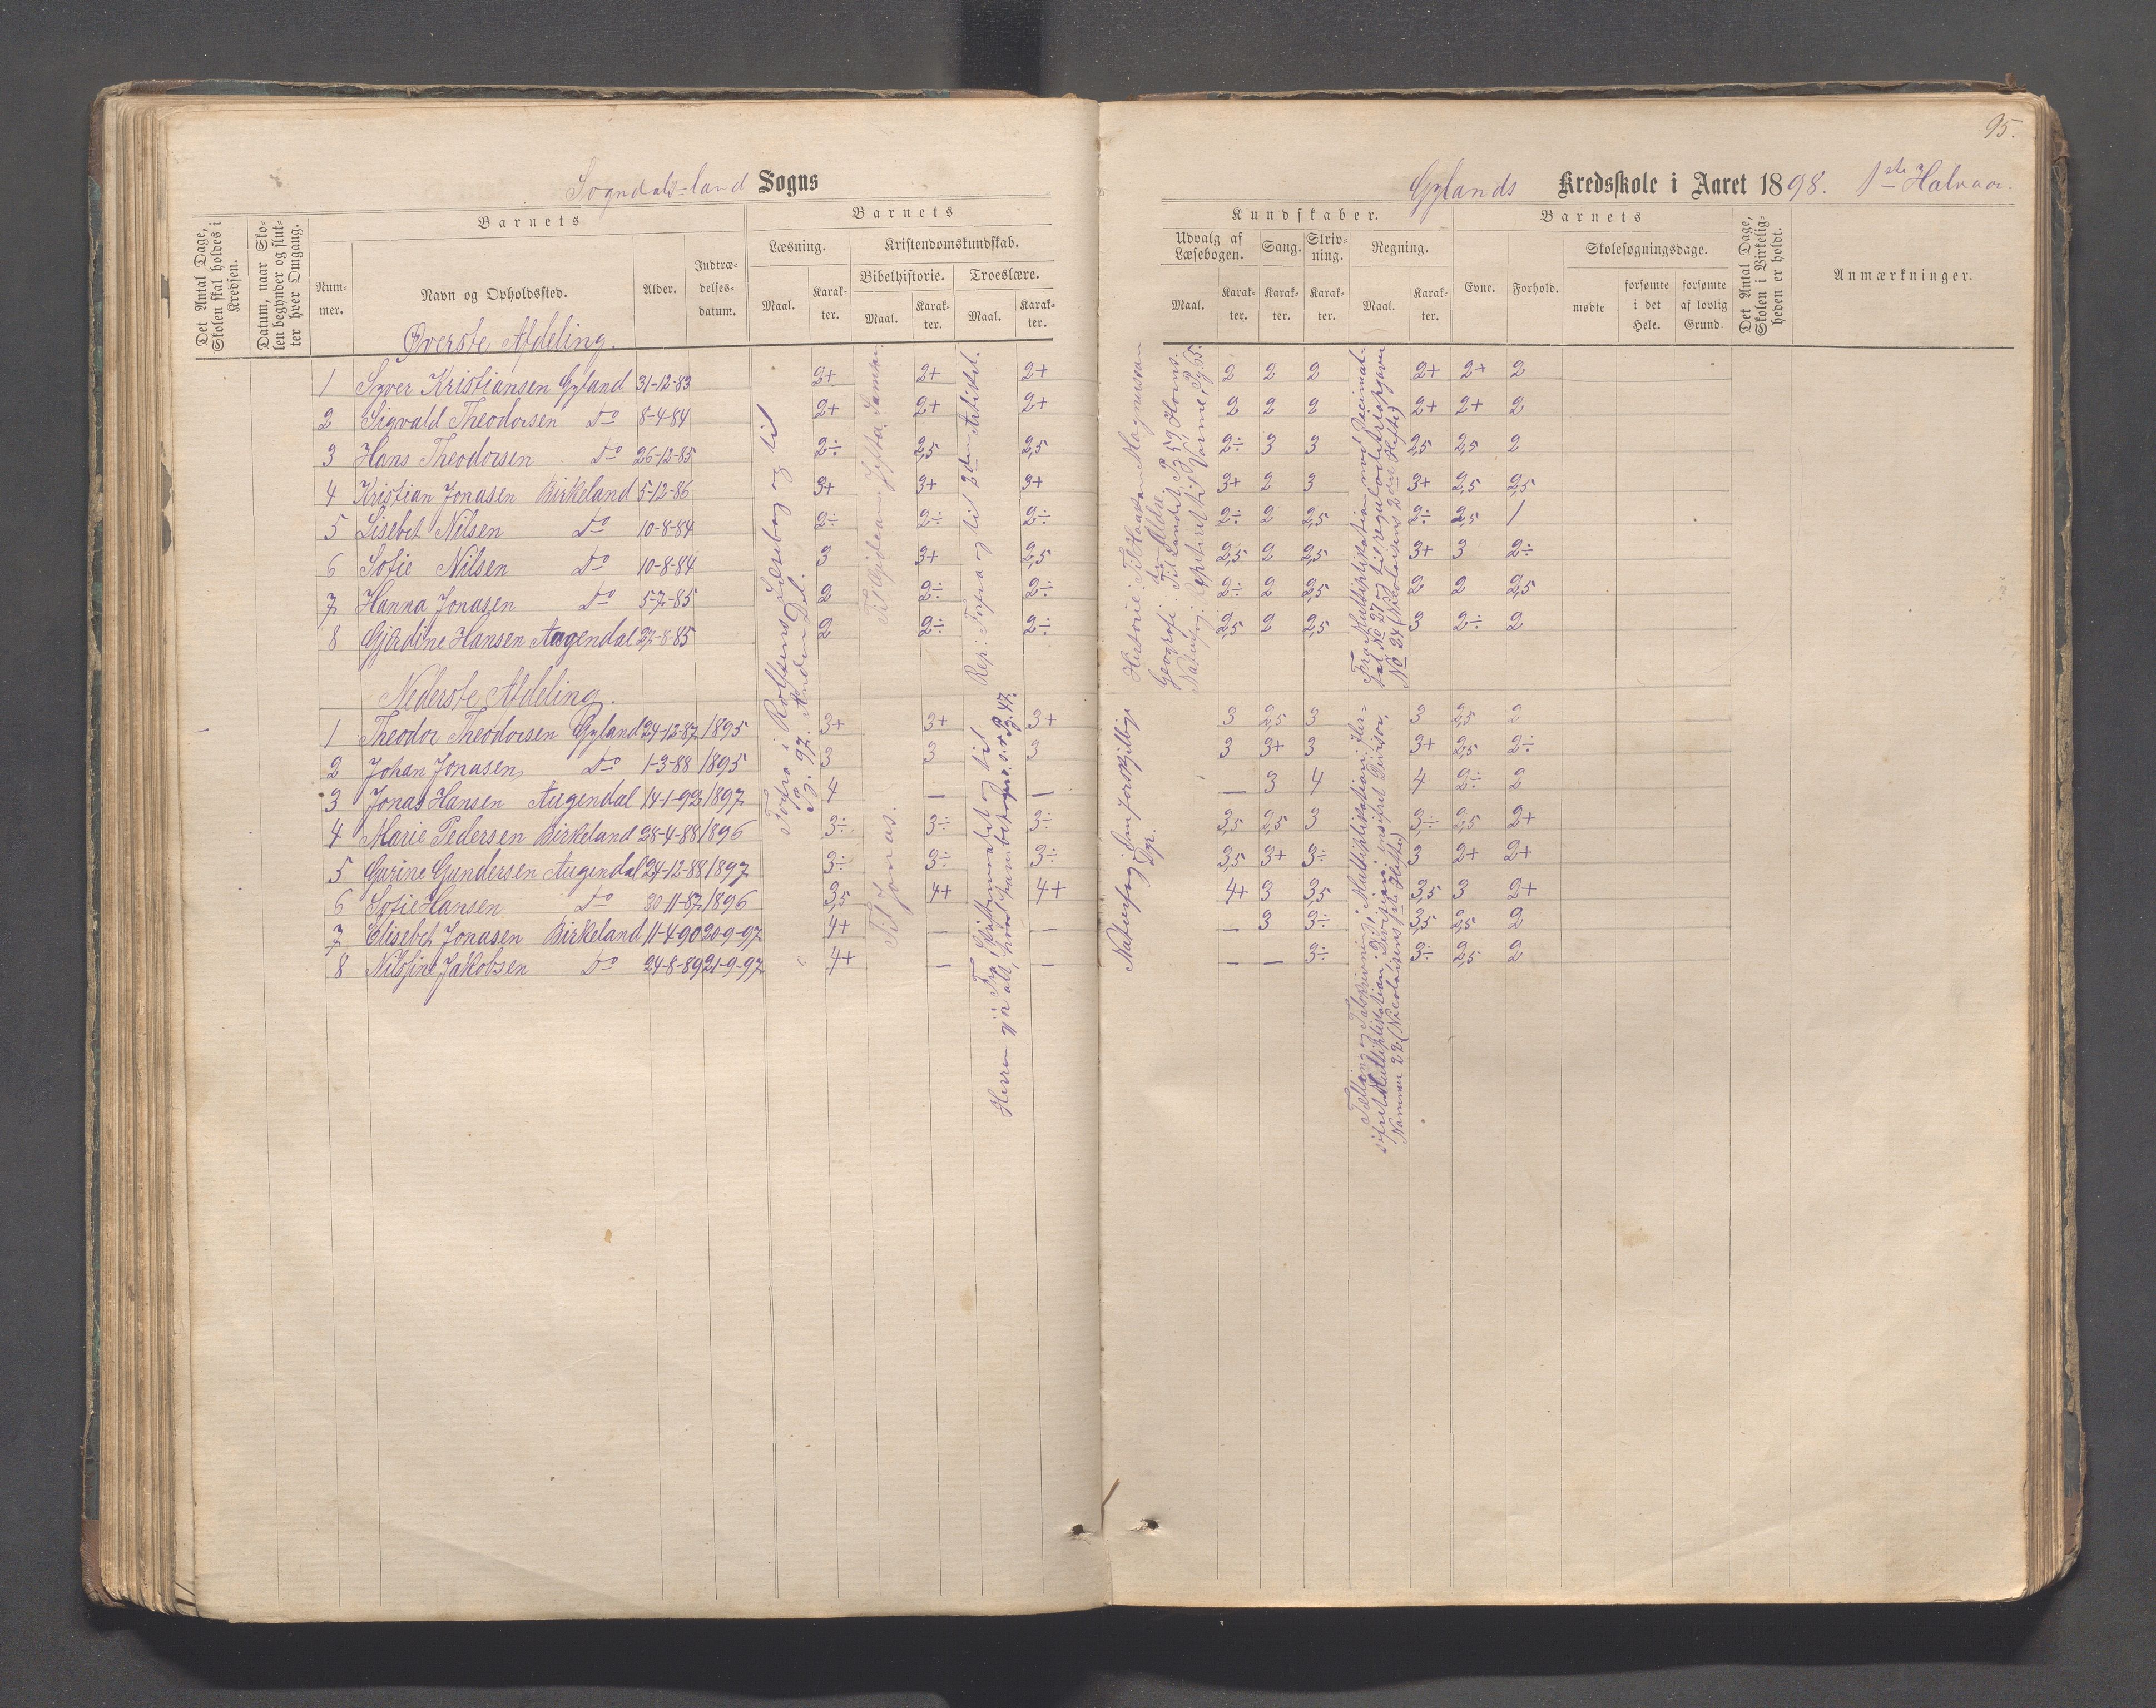 95.
Sogndals-land Sogns
Gylands Kredsskole i Aaret 1898. 1ste Halvaar.
Det Antal Dage, Skolen skal holdes i Kredsen.
Datum, naar Skolen begynder og slutter hver Omgang.
Barnets
Nummer.
Navn og Opholdssted.
Alder.
Indtrædelsesdatum.
Barnets
Læsning.
Maal.
Karakter.
Kristendomskundskab.
Bibelhistorie.
Maal.
Karakter.
Troeslære.
Maal.
Karakter.
Kundskaber.
Udvalg af Læsebogen.
Maal.
Karakter.
Sang.
Karakter.
Skrivning.
Karakter.
Regning.
Maal.
Karakter.
Barnets
Evne.
Forhold.
Skolesøgningsdage.
mødte
forsømte i det Hele.
forsømte af lovlig Grund.
Det Antal Dage, Skolen i Virkeligheden er holdt.
Anmærkninger.
Øverste Afdeling.
1 Syver Kristiansen Gyland 31-12-83 2+ 2+ 2+ 2 2 2 2+ 2+ 2
2 Sigvald Theodorsen Do 8-4-84 2+ 2+ 2+ 2 2 2 2+ 2+ 2
3 Hans Theodorsen Do 26-12-85 2÷ 2,5 2,5 2÷ 3 3 2,5 2,5 2
4 Kristian Jonasen Birkeland 5-12-86 3+ 3+ 3+ 3+ 2 3 3+ 2,5 2,5
5 Lisebet Nilsen Do 10-8-84 2÷ 2÷ 2÷ 2÷ 2 2,5 2÷ 2,5 /
6 Sofie Nilsen Do 10-8-84 3 3+ 2,5 2,5 2 2,5 3+ 3 2÷
7 Hanna Jonasen Do 5-7-85 2 2÷ 2÷ 2÷ 2 2,5 2 2 2,5
8 Gjærdine Hansen Augendal 27-8-85 2 2÷ 2÷ 2,5 2 2,5 3 2÷ 2
Nederste Afdeling.
1 Theodor Theodorsen Gyland 24-12-87 1895 3+ 3+ 3+ 3 2,5 3 3 2,5 2
2 Johan Jonasen Do 1-3-88 1895 3 3 3 3 3+ 3 3+ 2,5 2÷
3 Jonas Hansen Augendal 14-1-92 1897 4 — — — 3 4 4 2÷ 2
4 Marie Pedersen Birkeland 28-4-88 1896 3÷ 3÷ 3÷ 3,5 2,5 3 3÷ 2,5 2+
5 Gurine Gundersen Augendal 24-12-88 1897 3÷ 3÷ 3÷ 3,5 3+ 3÷ 3 2+ 2+
6 Sofie Hansen Do 20-11-87 1896 3,5 4+ 4+ 4+ 3 3,5 3,5 3 2+
7 Elisebet Jonasen Birkeland 11-4-90 20-9-97 4+ — — — 3 3÷ 3,5 2,5 2
8 Nilsine Jakobsen Do 24-8-89 21-9-97 4+ — — — — 3÷ 3÷ 2,5 2
Forfra i Rolfsens Læsebog og til
Pg. 97. Anden Del.
Til Gideon. Jefta. Samson.
Til Jonas.
Rep. Forfra og til 2den Artikel.
Historie: Til Haakon Magnussøn
den Ældre.
Geografi: Til Landet Pg 59 Horns.
Naturfag: Repetirt til Varme, Pg 65.
Naturfag: Den forskjellige
Dyr.
Fra Multiplikation med Decimal-
tal No 27 og til reguladetriopgaver
No 24 (Nicolaisens 2det Hefte)
Tælling og Talskrivning; Multiplikation; fler-
sifret Multiplikation; Division; ensifret Divisor,
Nummer 22 (Nicolaisens 1ste Hefte)